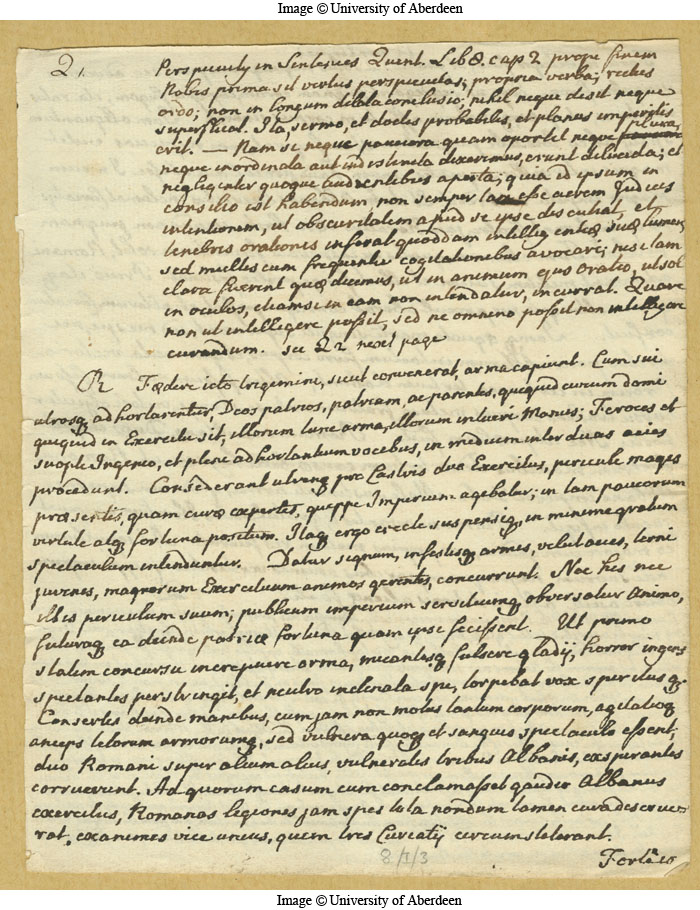 Image © University of Aberdeen
Q,
Perspicuity in Sentences Quent. Lib 8. cap 2 prope finem
Nobis prima sit vertus perspicuetas; propria verba; rectus
ordo; non in longum delata conclusio; nihil neque desit neque
superfluat. Ita, sermo, et doctes probabiles, et planus imperitis
erit. — Nam si neque pauciora quam oportet neque plura,
neque inordinata aut indistincta dixerimus, erunt delucida; et
negligenter quoque audientibus aperta; quia id ipsum in
consilio est habendum, non semper tam esse acrem Judicis
intentionem, ut obscuritatem apud se ipse descutiat, et
tenebris orationis inferat quoddam intelligentiæ suæ lumen,
sed multis eum frequenter cogitationibus avocari; nisi tam
clara fuerint quæ dicimus, ut in animum ejus oratio, ut sol
in oculos, etiamsi in eam non intendatur, incurrat. Quare
non ut intellegere possit, sed ne omnino possit non intellegere
curandum. see Q2 next page
R Fœdere icto trigemini, sicut convenerat, arma capiunt. Cum sui
utrosq adhortarentur, Deos patrios, patriam, ac parentes, quicquid civium domi
quicquid in Exercitu sit, illorum tunc arma, illorum intueri Manus; Feroces et
suopte Ingenio, et pleni adhortantium vocibus, in medium inter duas acies
procedunt. Consederant utrinq pro Castris duo Exercitus, periculi magis
præsentis, quam curæ expertes, quippe Imperium agebatur, in tam paucorum
virtute atq fortuna positum. Itaq ergo erecti suspensiq, in minime gratum
spectaculum intenduntur. Datur signum, infestisq armis, velut acies, terni
juvenes, magnorum Exercituum animos gerentes, concurrunt. Nec his nec
illis periculum suum; publicum imperium servitiumq observatur Animo,
futuraq ea deinde patriæ fortuna quam ipsi fecissent. Ut primo
statim concursu increpuere arma, micantesq fulsere gladij, horror ingens
spectantes perstringit, et neutro inclinata spe, torpebat vox spiritusq.
Consertis deinde manibus, cum jam non motus tantum corporum, agitatioq
anceps telorum armorumq, sed vulnera quoq et sanguis spectaculo essent,
duo Romani super alium alius, vulneratis tribus Albanis, exspirantes
corruerunt. Ad quorum casum cum conclamasset gaudio Albanus
exercitus, Romanas legiones jam spes tota nondum tamen cura deserue-
rat, exanimes vice unius, quem tres Curiatij circumsteterant.
8/I/3
Image © University of Aberdeen